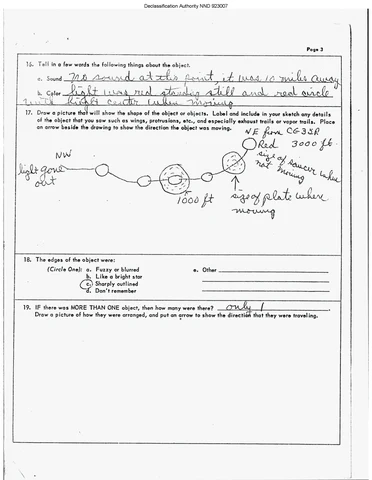 Declassification Authority NND 923007
Page 3
16. Tell in a few words the following things about the object.
a. Sound no sound at the point, it was 10 miles away
b. Color light was red standing still and red circle
with light center when moving
17. Draw a picture that will show the shape of the object or objects. Label and include in your sketch any details
of the object that you saw such as wings, protrusions, etc., and especially exhaust trails or vapor trails. Place
an arrow beside the drawing to show the direction the object was moving.
NE from
Red 3000 ft.
size of saucer when
not moving
NW
light gone
out
1000 ft
size of plate when
moving
18. The edges of the object were:
(Circle One): a. Fuzzy or blurred
b. Like a bright star
c. Sharply outlined
d. Don't remember
e. Other
19. IF there was MORE THAN ONE object, then how many were there? only 1
Draw a picture of how they were arranged, and put an arrow to show the direction that they were traveling.